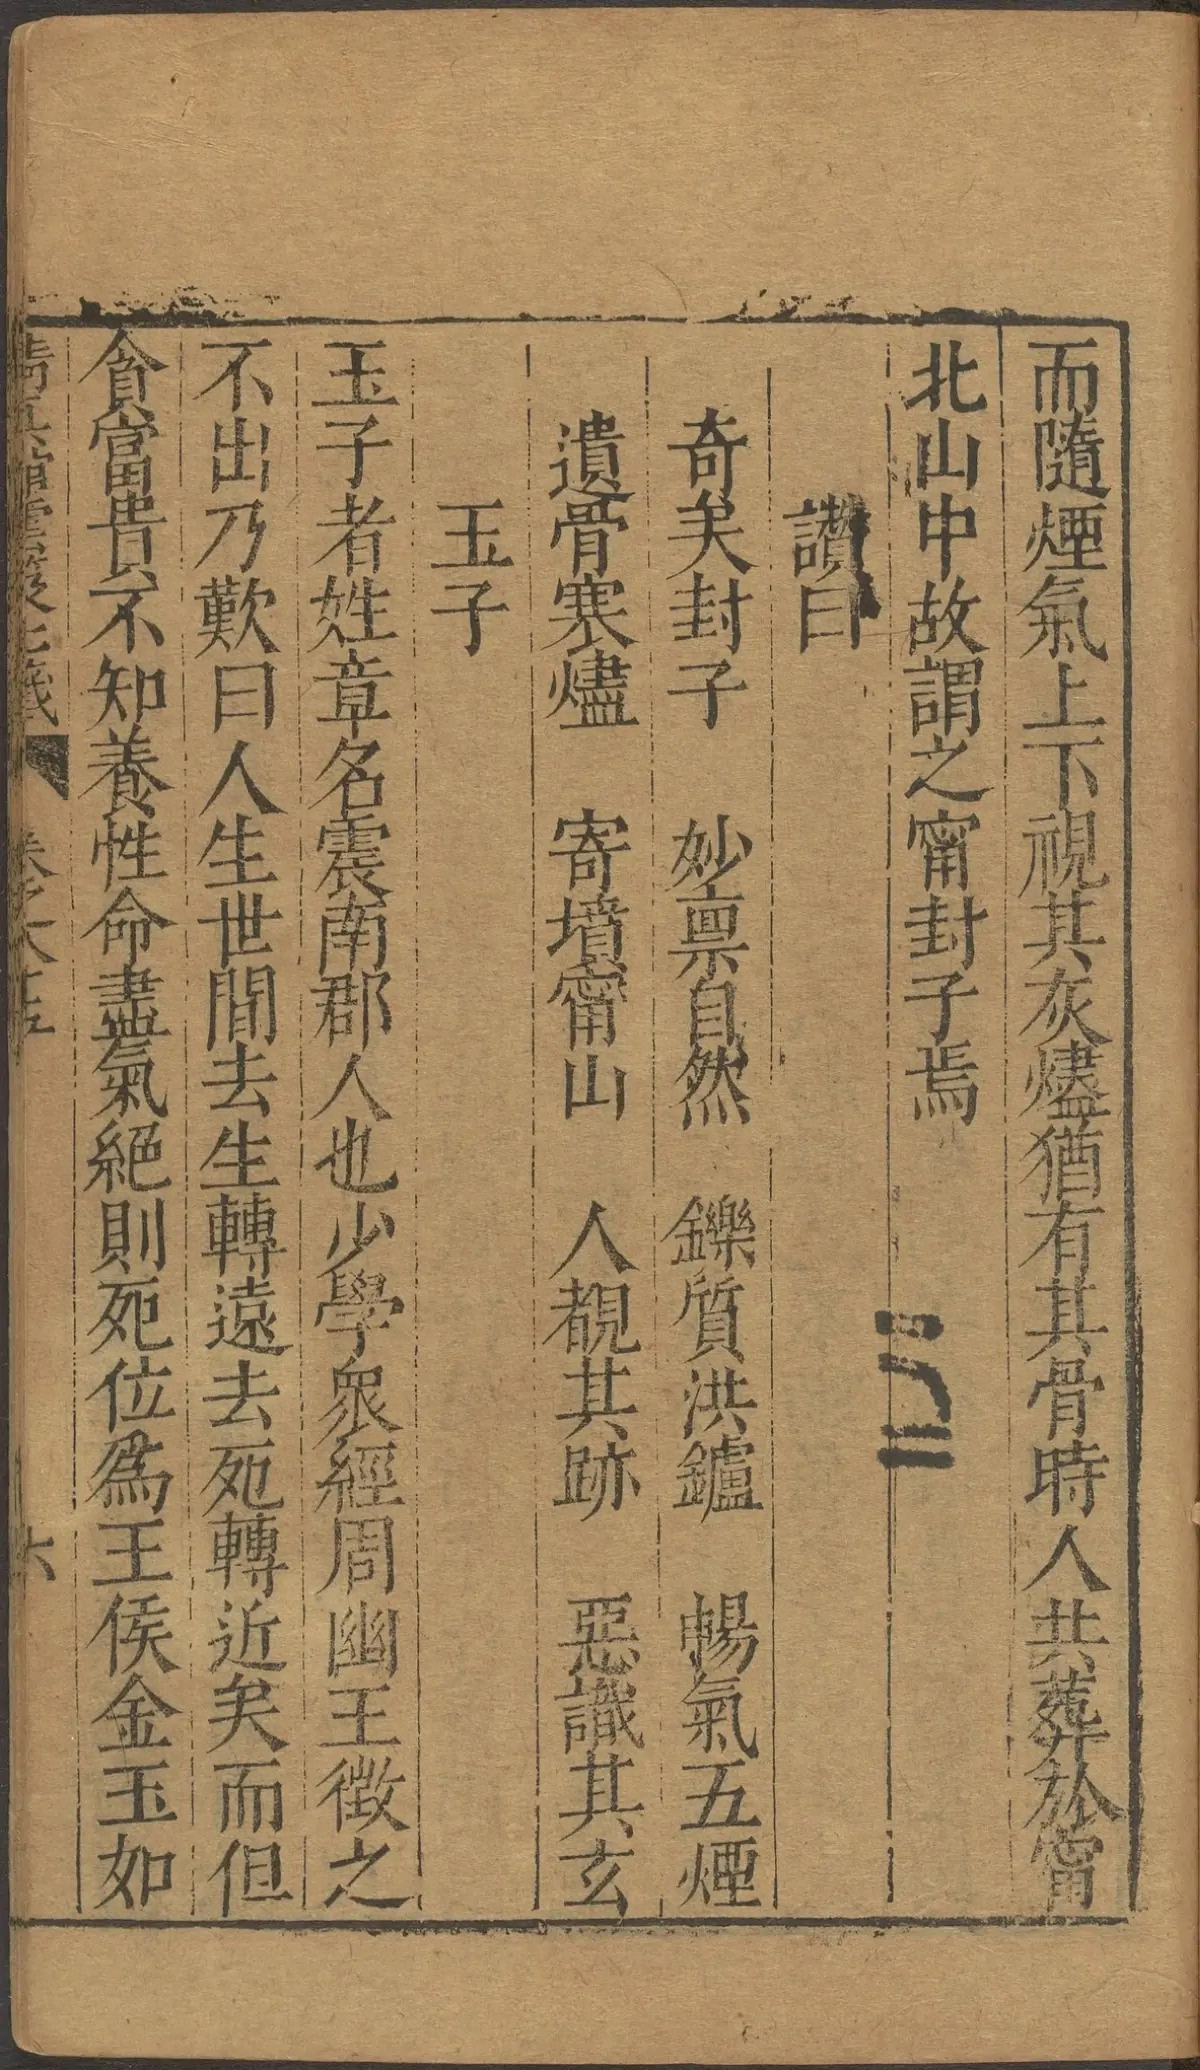 而隨煙氣上下視其灰燼猶有其骨時人共葬於甯
北山中故謂之甯封子焉
讚曰
奇矣封子 妙禀自然 鑠質洪鑪 暢氣五煙
遺骨寒燼 寄墳甯山 人覩其跡 惡識其玄
玉子
玉子者姓章名震南郡人也少學衆經周幽王徵之
不出乃歎曰人生世間去生轉遠去死轉近矣而但
貪富貴不知養性命盡氣絕則死位爲王侯金玉如
卷之大
六